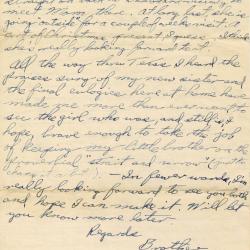 three
going "outside" for a couple of weeks. Sort
out of Christmas present I guess. I think
she's really looking forward to it.
All the way thru Texas I heard the
praises sung of my new sister and
the final eulogies here at home have
made me more than ever want to
see the girl who was, and still is, I
hope, brave enough to take the job
of keeping my little brother on the
proverbial "strait and narrow"
change in to it). — In fewer words, I'm
really looking forward to see you both
and hope I can make it. Will let
you know more later
Regards
Brother